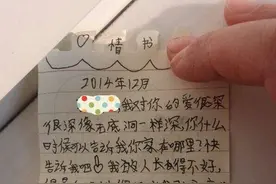 ♡情书
2014年12月
我对你的爱很深
很深像无底洞一样深你什么
时候可以告诉我你家在哪里了快
告诉我吧 我被人长得不好,